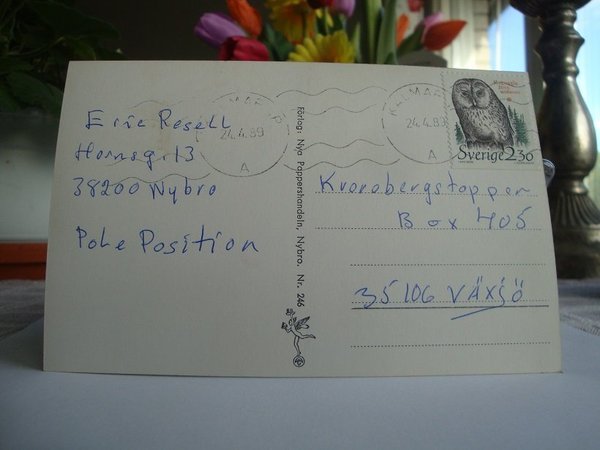 Eric Resell
Hornsg. 13
38200 Nybro
Pole Position
KALMAR
24.4.89
A
Förlag: Nya Pappershandeln, Nybro. Nr. 246
KALMAR
24.4.89
A
Sverige 2.30
Kronobergstoppen
Box 405
35106 VÄXJÖ